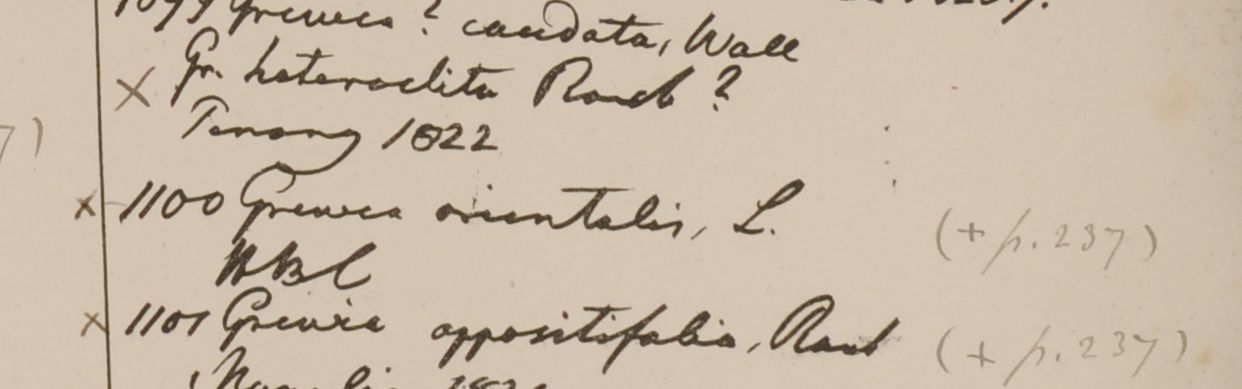 1099 Grewia? caudata, Wall
× Gr. heteroclita Roxb?
Penang 1822
× 1100 Grewia orientalis, L. (+ p. 237)
HBC
× 1101 Grewia oppositifolia, Roxb (+ p. 237)